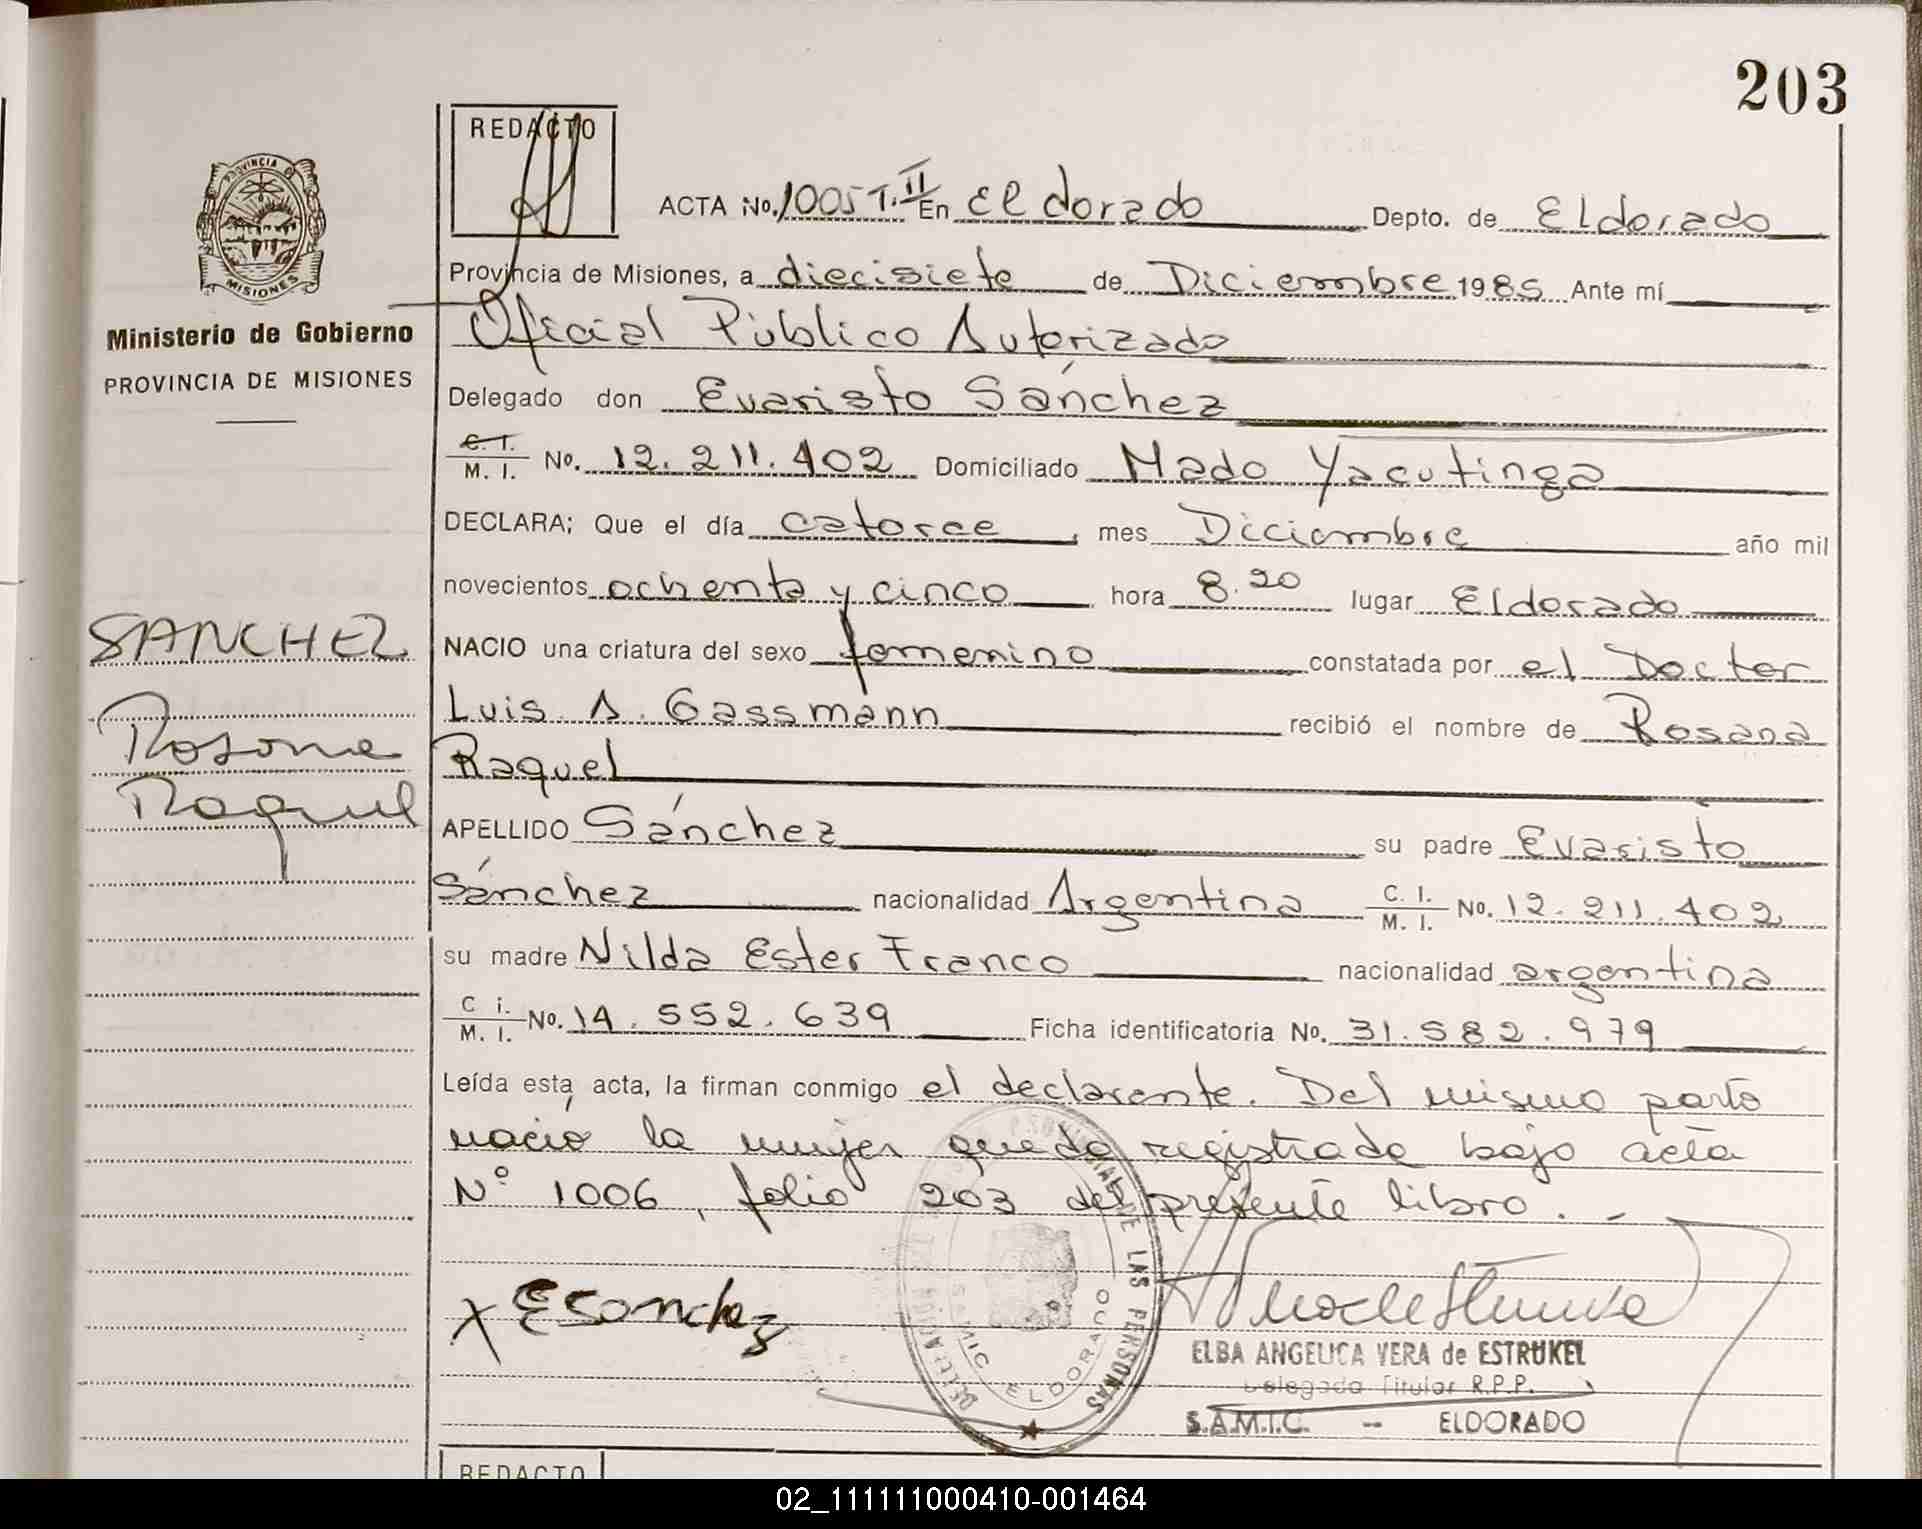 203
REDACTO
ACTA No. 1005 T. II En Eldorado Depto. de Eldorado
Provincia de Misiones, a diecisiete de Diciembre 1985 Ante mí
PROVINCIA DE
MISIONES
Ministerio de Gobierno
PROVINCIA DE MISIONES
Oficial Público Autorizado
Delegado don Evaristo Sánchez
C. I.
M. I. No. 12.211.402 Domiciliado Mado Yacutinga
DECLARA; Que el día catorce, mes Diciembre año mil
novecientos ochenta y cinco hora 8.20 lugar Eldorado
SANCHEZ
Rosana
Raquel
NACIO una criatura del sexo femenino constatada por el Doctor
Luis A. Gassmann recibió el nombre de Rosana
Raquel
APELLIDO Sánchez su padre Evaristo
Sánchez nacionalidad Argentina C. I. M. I. No. 12.211.402
su madre Nilda Ester Franco nacionalidad argentina
C i.
M. I. No. 14.552.639 Ficha identificatoria No. 31.582.979
Leída esta acta, la firman conmigo el declarante. Del mismo parto
nació la mujer queda registrada bajo acta
Nº 1006, folio 203 del presente libro.-
x ESanchez
DE LAS PERSONAS
SAMIC ELDORADO
ELBA ANGELICA VERA de ESTRUKEL
Delegada Titular R.P.P.
S.A.M.I.C. -- ELDORADO
REDACTO
02_111111000410-001464